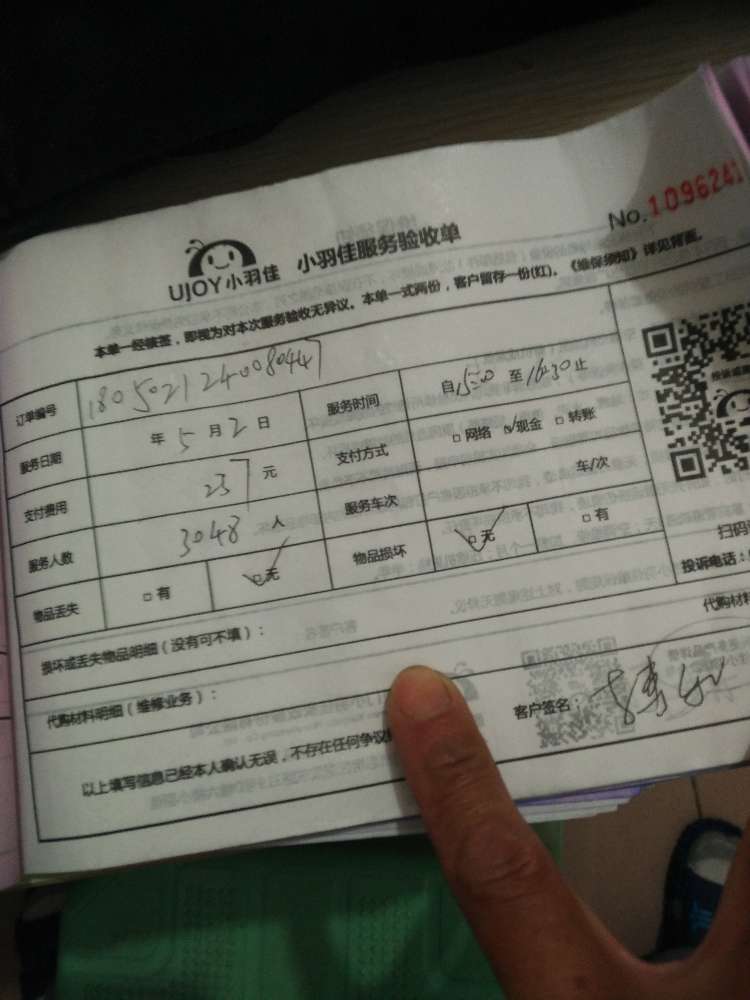 No.1096241
UJOY小羽佳 小羽佳服务验收单
本单一经被签，即视为对本次服务验收无异议。本单一式两份，客户留存一份(红)。《维保须知》详见背面。
订单编号 180502124008044 服务时间 自15:00 至16:30止
服务日期 年5月2日 支付方式 □网络 ☑现金 □转账
支付费用 237元 服务车次 车/次
服务人数 3048人 物品损坏 ☑无 □有
物品丢失 □有 ☑无
扫码
投诉电话：
损坏或丢失物品明细（没有可不填）：
代购材料
代购材料明细（维修业务）：
以上填写信息已经本人确认无误，不存在任何争议
客户签名：